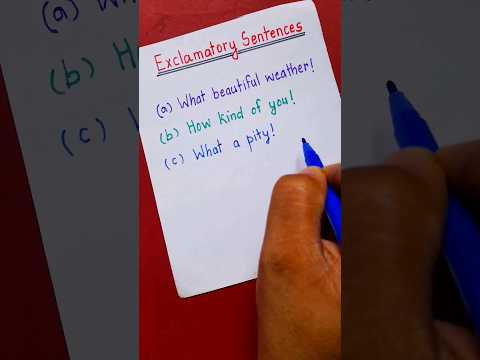 Exclamatory Sentences
(a) What beautiful weather!
(b) How kind of you!
(c) What a pity!